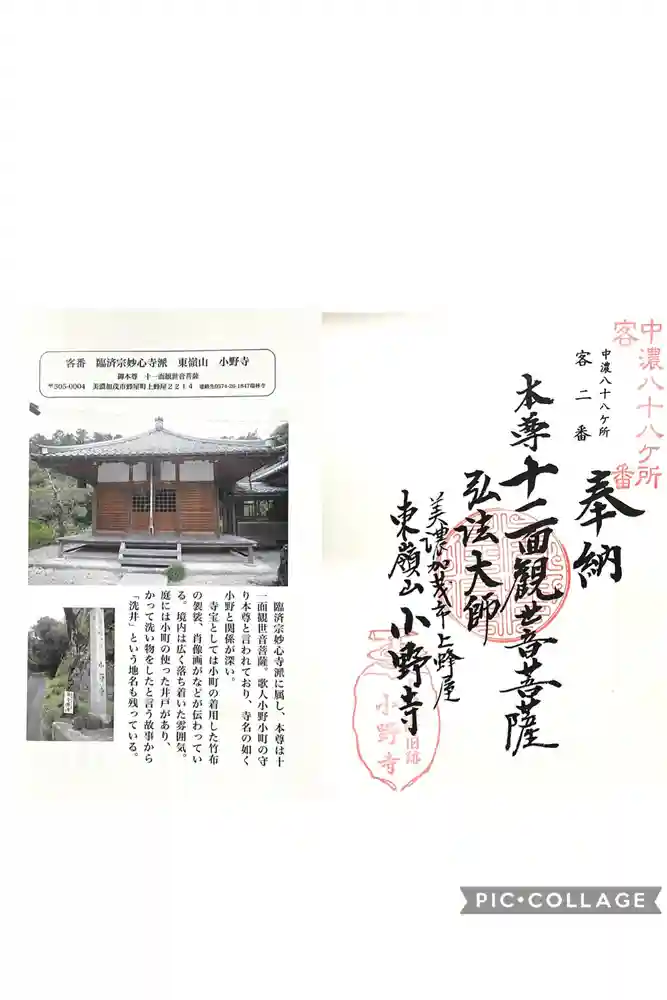 客番 臨済宗妙心寺派 東嶺山 小野寺
御本尊 十一面観世音菩薩
〒505-0004 美濃加茂市蜂屋町上蜂屋2214 連絡先0574-26-1847瑞林寺
臨済宗妙心寺派に属し、本尊は十
一面観世音菩薩。歌人小野小町の守
り本尊と言われており、寺名の如く
小野と関係が深い。
寺宝としては小町の着用した竹布
の袈裟、肖像画がなどが伝わってい
る。境内は広く落ち着いた雰囲気。
庭には小町の使った井戸があり、
かって洗い物をしたと言う故事から
「洗井」という地名も残っている。
中濃八十八ケ所
客 番
中濃八十八ケ所
客二番
奉納
本尊十一面観世音菩薩
弘法大師
美濃加茂市上蜂屋
東嶺山小野寺
旧跡
小野寺
PIC•COLLAGE